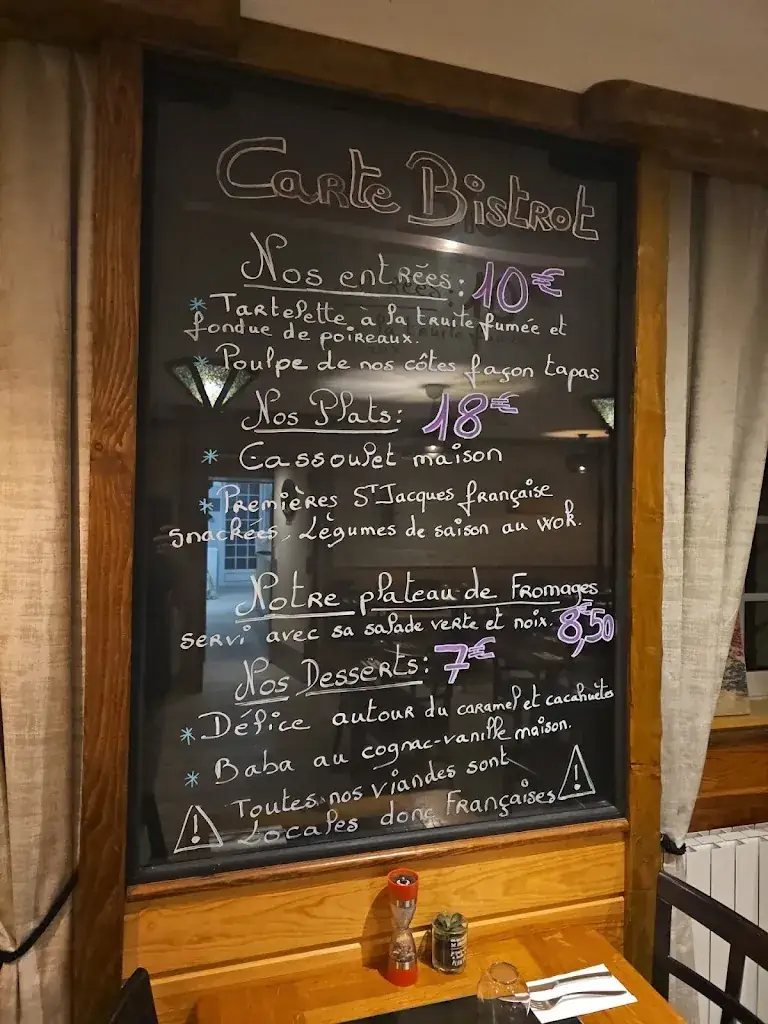 Carte Bistrot
Nos entrées: 10€
* Tartelette à la truite fumée et
fondue de poireaux.
* Poulpe de nos côtes façon tapas
Nos Plats: 18€
* Cassoulet maison
* Premières St Jacques française
snackées, Légumes de saison au wok.
Notre plateau de Fromages
servi avec sa salade verte et noix. 8,50€
Nos Desserts: 7€
* Délice autour du caramel et cacahuètes
* Baba au cognac-vanille maison.
Toutes nos viandes sont
Locales donc Françaises